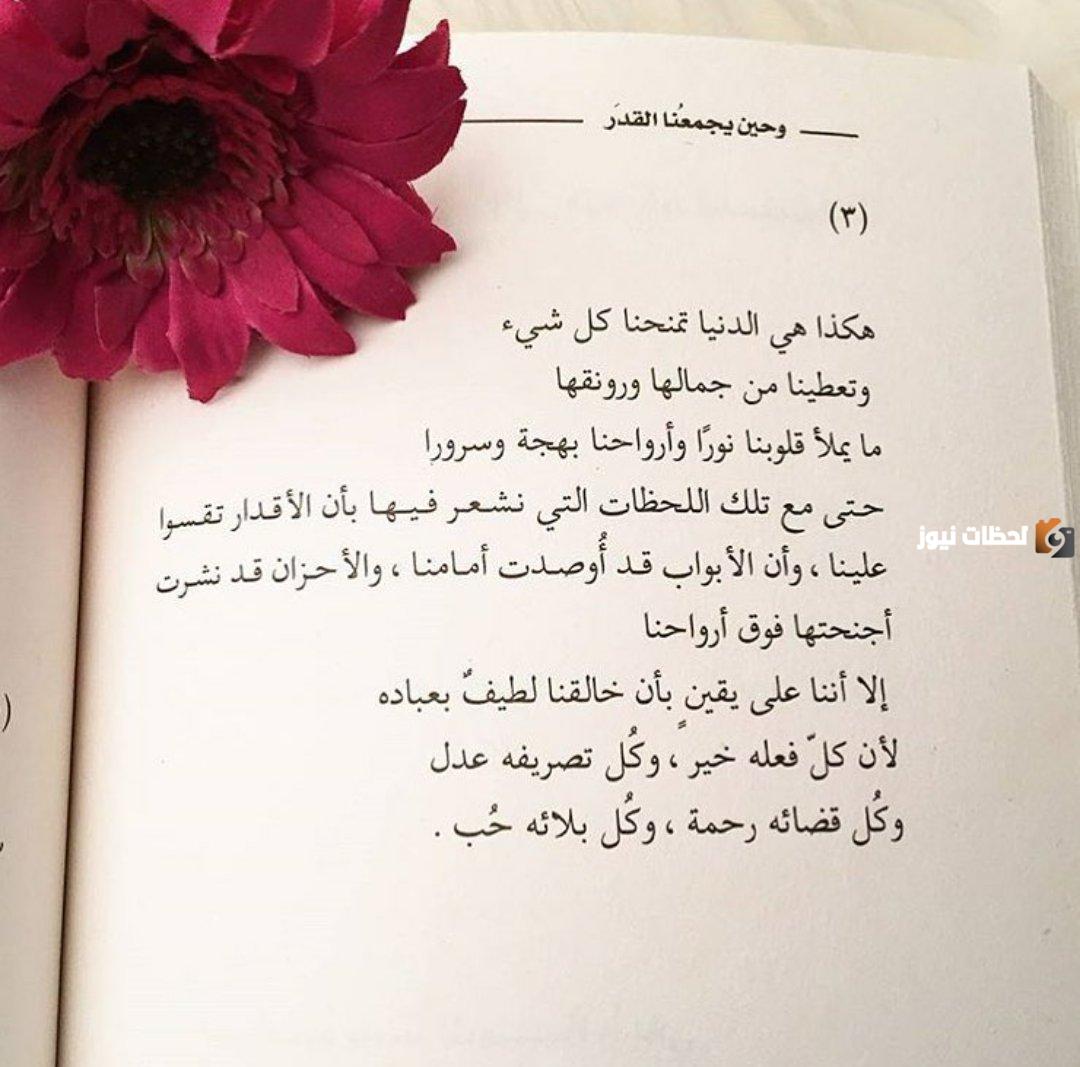 وحين يجمعُنا القدَر
(٣)
هكذا هي الدنيا تمنحنا كل شيء
وتعطينا من جمالها ورونقها
ما يملأ قلوبنا نورًا وأرواحنا بهجة وسرورا
حتى مع تلك اللحظات التي نشعر فيها بأن الأقدار تقسوا
علينا ، وأن الأبواب قد أُوصدت أمامنا ، والأحزان قد نشرت
أجنحتها فوق أرواحنا
إلا أننا على يقينٍ بأن خالقنا لطيفٌ بعباده
لأن كلّ فعله خير ، وكُل تصريفه عدل
وكُل قضائه رحمة ، وكُل بلائه حُب .
لحظات نيوز